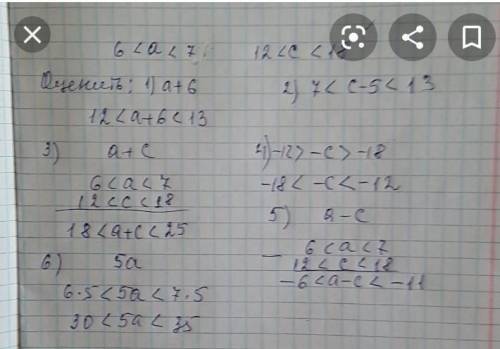 6 < a < 7 12 < c < 18
Оценить: 1) a+6
12 < a+6 < 13
2) 7 < c-5 < 13
3) a+c
6 < a < 7
12 < c < 18
18 < a+c < 25
4) -12 > -c > -18
-18 < -c < -12
5) a-c
- 6 < a < 7
12 < c < 18
-6 < a-c < -11
6) 5a
6·5 < 5a < 7·5
30 < 5a < 35